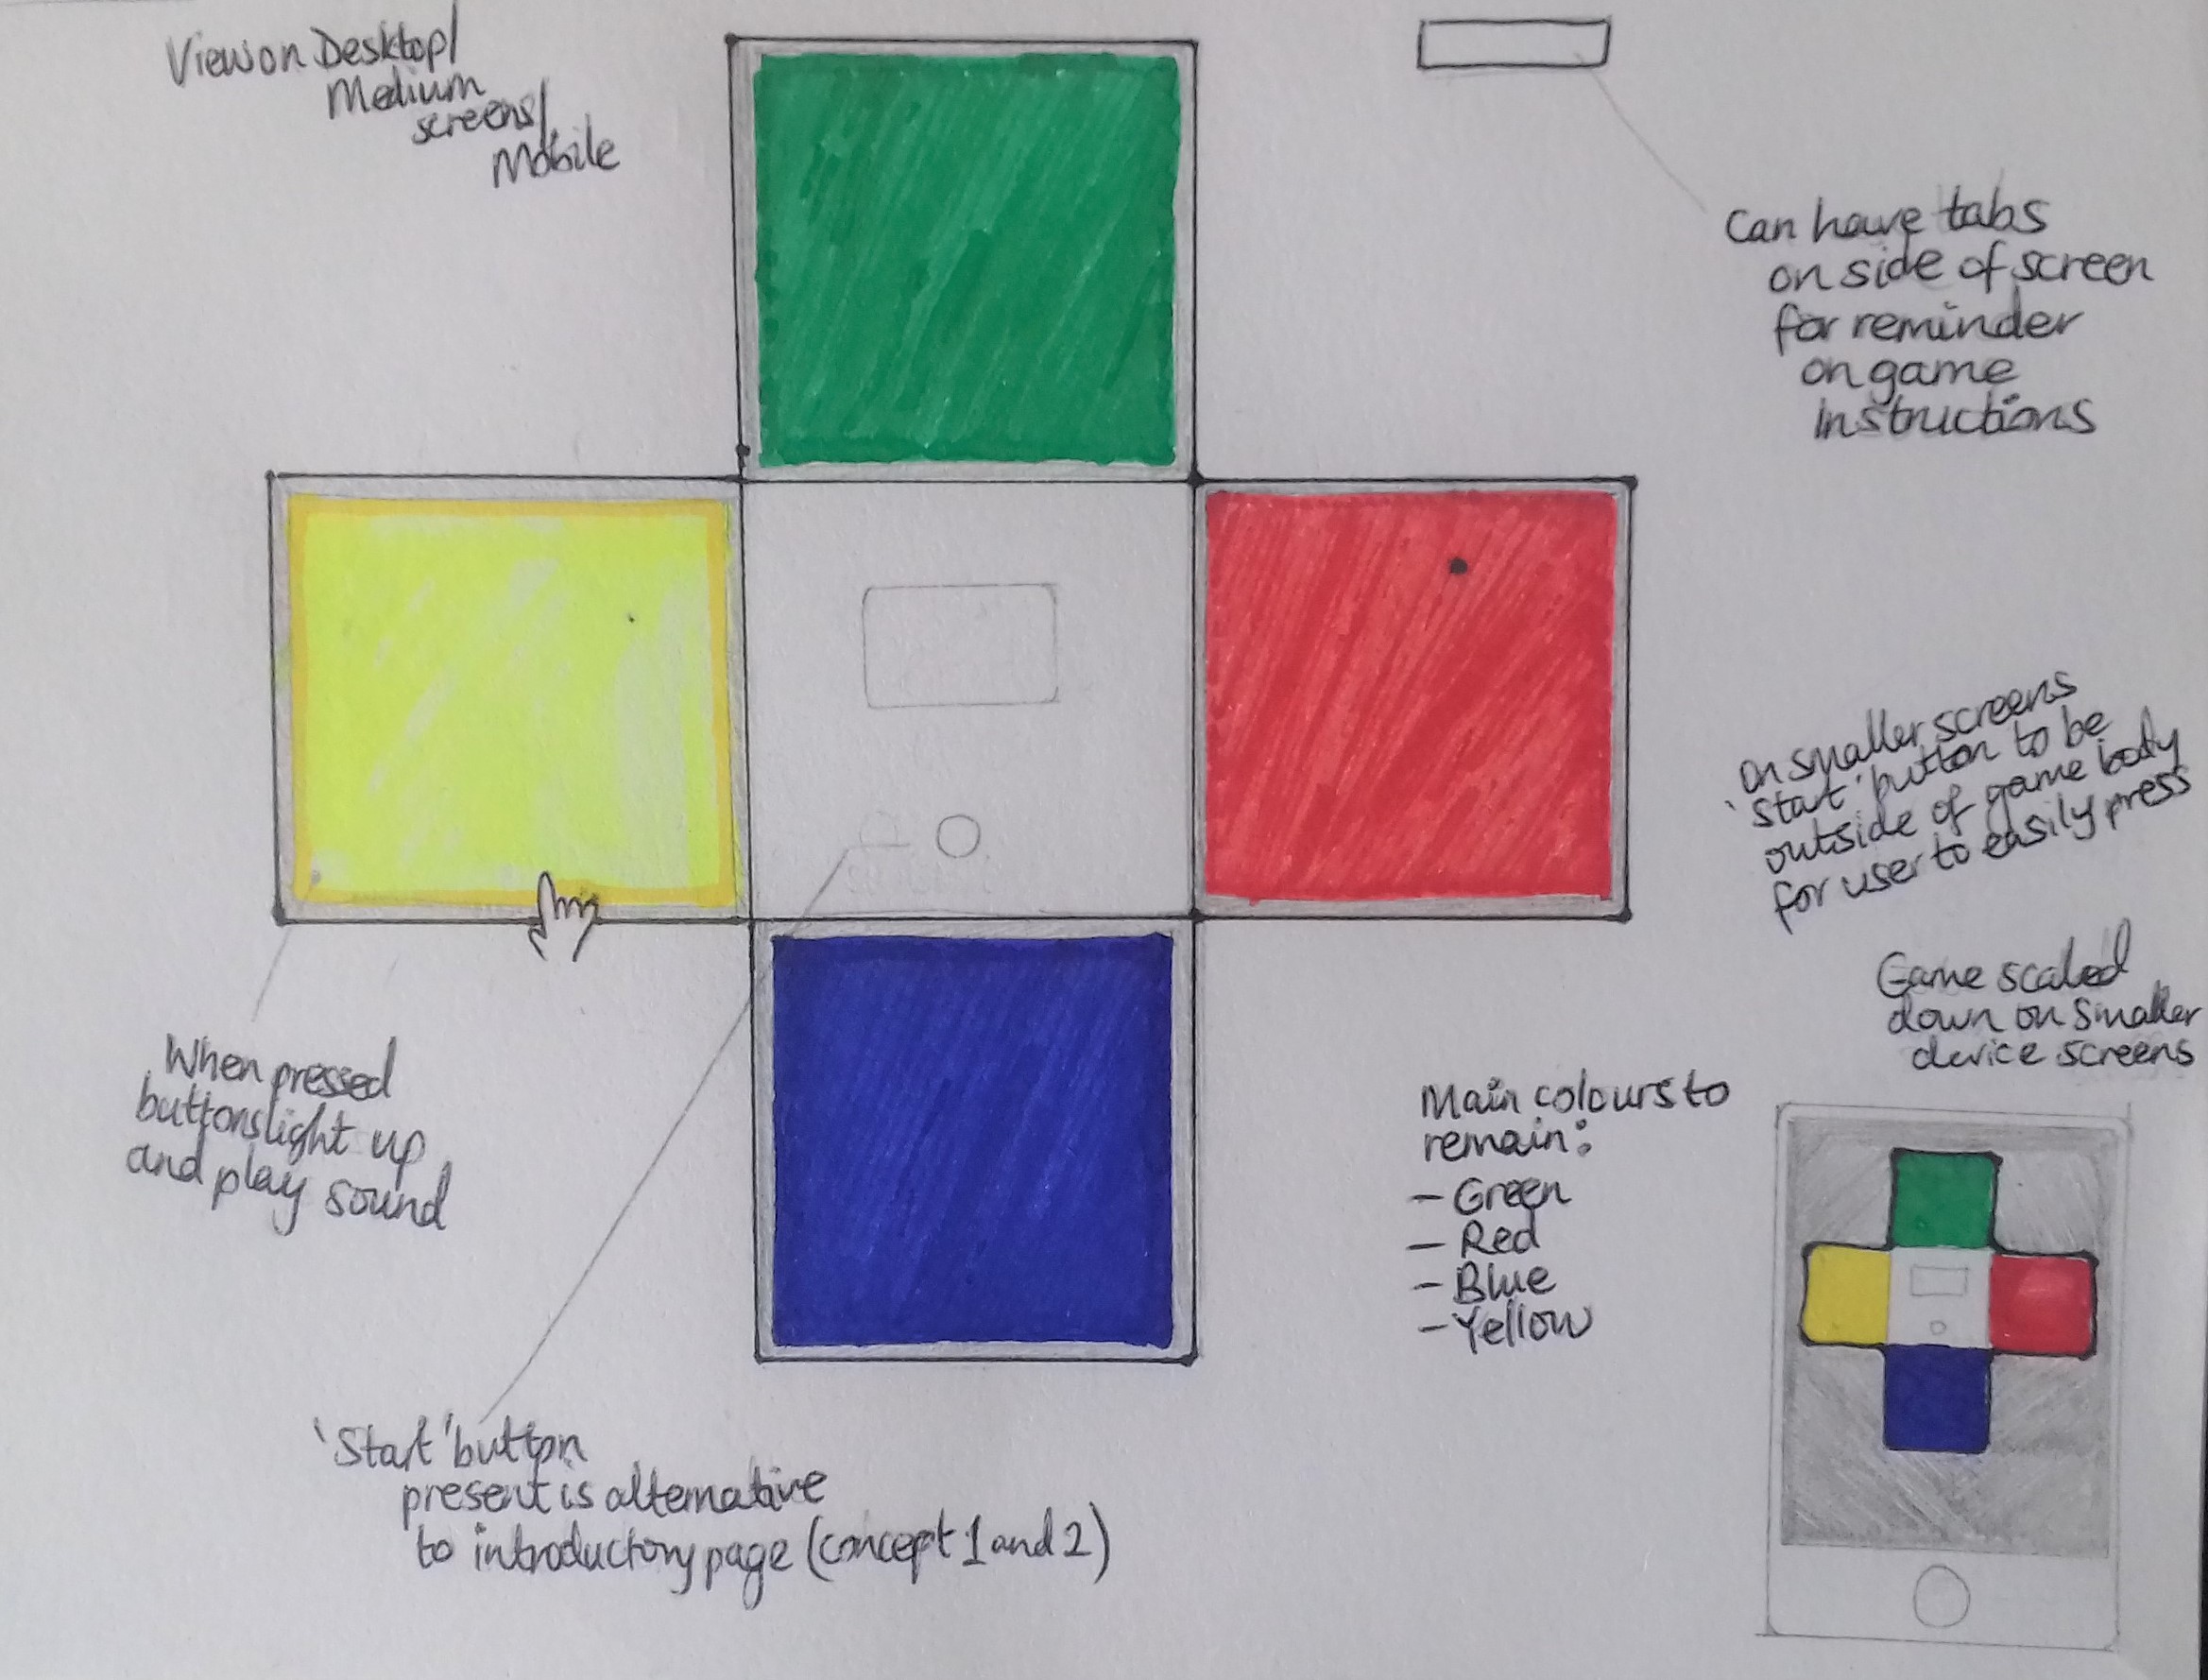 View on Desktop/
Medium
screens/
Mobile
Can have tabs
on side of screen
for reminder
on game
instructions
on smaller screens
'start' button to be
outside of game body
for user to easily press
Game scaled
down on smaller
device screens
When pressed
buttons light up
and play sound
Main colours to
remain:
- Green
- Red
- Blue
- Yellow
'Start' button
present is alternative
to introductory page (concept 1 and 2)